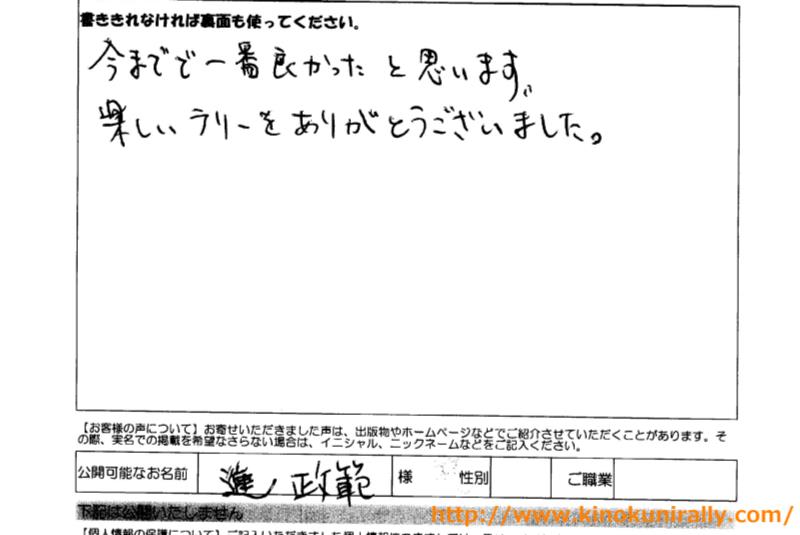 書ききれなければ裏面も使ってください。
今までで一番良かったと思います。
楽しいラリーをありがとうございました。
【お客様の声について】お寄せいただきました声は、出版物やホームページなどでご紹介させていただくことがあります。そ
の際、実名での掲載を希望なさらない場合は、イニシャル、ニックネームなどをご記入ください。
公開可能なお名前 進 政範 様 性別 ご職業
下記は公開いたしません
http://www.kinokunirally.com/